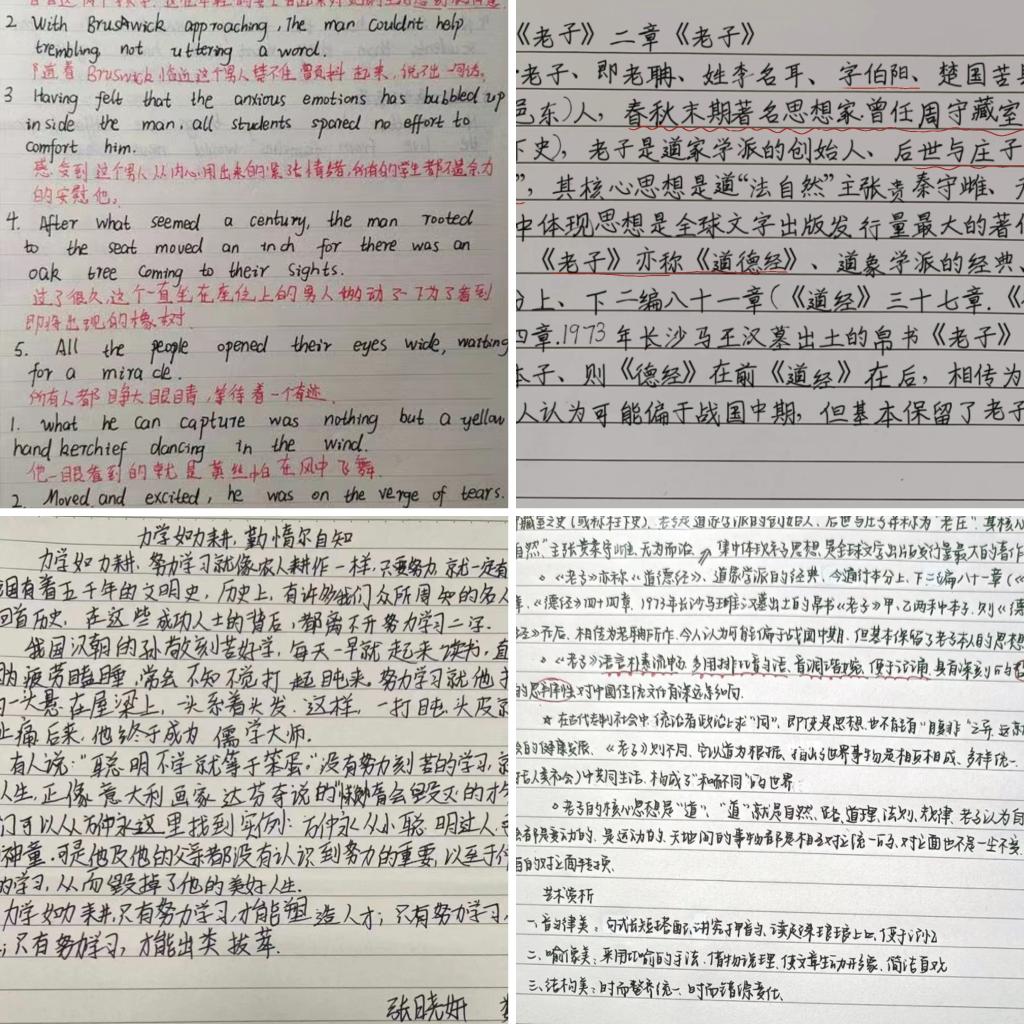 2 With Brushwick approaching, The man couldn't help
trembling not uttering a word.
随着 Bruswick 临近这个男人禁不住 起来,说不出一句话。
3 Having felt that the anxious emotions has bubbled up
inside the man, all students spared no effort to
comfort him.
感受到这个男人从内心涌出来的紧张情绪,所有的学生都不遗余力
的安慰他。
4. After what seemed a century, the man rooted
to the seat moved an inch for there was an
oak tree coming to their sights.
过了很久,这个一直坐在座位上的男人挪动了一下为了看到
即将出现的橡树.
5. All the people opened their eyes wide, waiting
for a miracle.
所有人都睁大眼睛,等待着一个奇迹.
1. what he can capture was nothing but a yellow
handkerchief dancing in the wind.
他一眼看到的就是黄丝怕在风中飞舞.
2. Moved and excited, he was on the verge of tears.
《老子》二章《老子》
老子、即老聃、姓李名耳、字伯阳、楚国苦县
邑东)人,春秋末期著名思想家.曾任周守藏室
下史),老子是道家学派的创始人、后世与庄子
”,其核心思想是道“法自然”主张贵柔守雌、无
中体现思想是全球文字出版发行量最大的著作
《老子》亦称《道德经》、道象学派的经典、
分上、下二编八十一章(《道经》三十七章.《
四章.1973年长沙马王汉墓出土的帛书《老子》
本子、则《德经》在前《道经》在后,相传为
人认为可能偏于战国中期,但基本保留了老子
力学如力耕,勤惰尔自知
力学如力耕,努力学习就像农人耕作一样,只要努力,就一定有
国有着五千年的文明史,历史上,有许多我们众所周知的名人
回首历史,在这些成功人士的背后,都离不开努力学习二字.
我国汉朝的孙敬刻苦好学,每天一早就起来读书,直
疲劳瞌睡,常会不知不觉打起盹来.努力学习就他
一头悬在屋梁上,一头系着头发.这样,一打盹,头皮就
止痛后来,他终于成为儒学大师.
有人说:“聪明不学就等于笨蛋.”没有努力刻苦的学习,就
人生,正像意大利画家达芬奇说的“懒惰会毁灭的才
们可以从方仲永这里找到实例:方仲永从小聪明过人,
神童.可是他及他的父亲都没有认识到努力的重要,以至于
的学习,从而毁掉了他的美好人生.
力学如力耕,只有努力学习,才能塑造人才;只有努力学习,
;只有努力学习,才能出类拔萃.
张晓妍
藏室之史(或称柱下史).老子是道家学派的创始人、后世与庄子并称为“老庄”.其核心
自然”主张贵柔守雌、无为而治, 集中体现老子思想,是全球文字出版发行量最大的著作
。《老子》亦称《道德经》、道象学派的经典,今通行本分上、下二编八十一章(《
章、《德经》四十四章.1973年长沙马王堆汉墓出土的帛书《老子》甲、乙两种本子,则《德
经》在后.相传为老聃所作.今人认为可能偏于战国中期.但基本保留了老子本人的思想
。《老子》语言朴素流畅,多用排比句与法,音调铿锵,便于记诵,具有深刻的
的思辨性,对中国传统文化有深远影响.
☆ 在古代专制社会中,统治者政治上求“同”,即使是思想,也不容有“自是非”之异,
的健康发展.《老子》则不同,它以道为根据,指出世界事物是相反相成、多样统一
在人类社会)中共同生活,构成了“和而不同”的世界
。老子的核心思想是“道”,“道”就是自然、路、道理、法则、规律.老子认为自
都是变动的.是运动的.天地间的事物都是相互对立统一的,对立面也不是一生不变
自的对立面转换.
艺术赏析
一、音韵律美:句式长短搭配,讲究押韵,读起来琅琅上口,便于记忆
二、喻像美:采用比喻的手法,借物说理,使文章生动形象、简洁直观
三、结构美:时而整齐统一,时而错综变化.